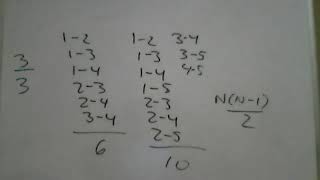 3/3
1-2 1-2 3-4
1-3 1-3 3-5
1-4 1-4 4-5
2-3 1-5
2-4 2-3
3-4 2-4
6 2-5
10
N(N-1)/2